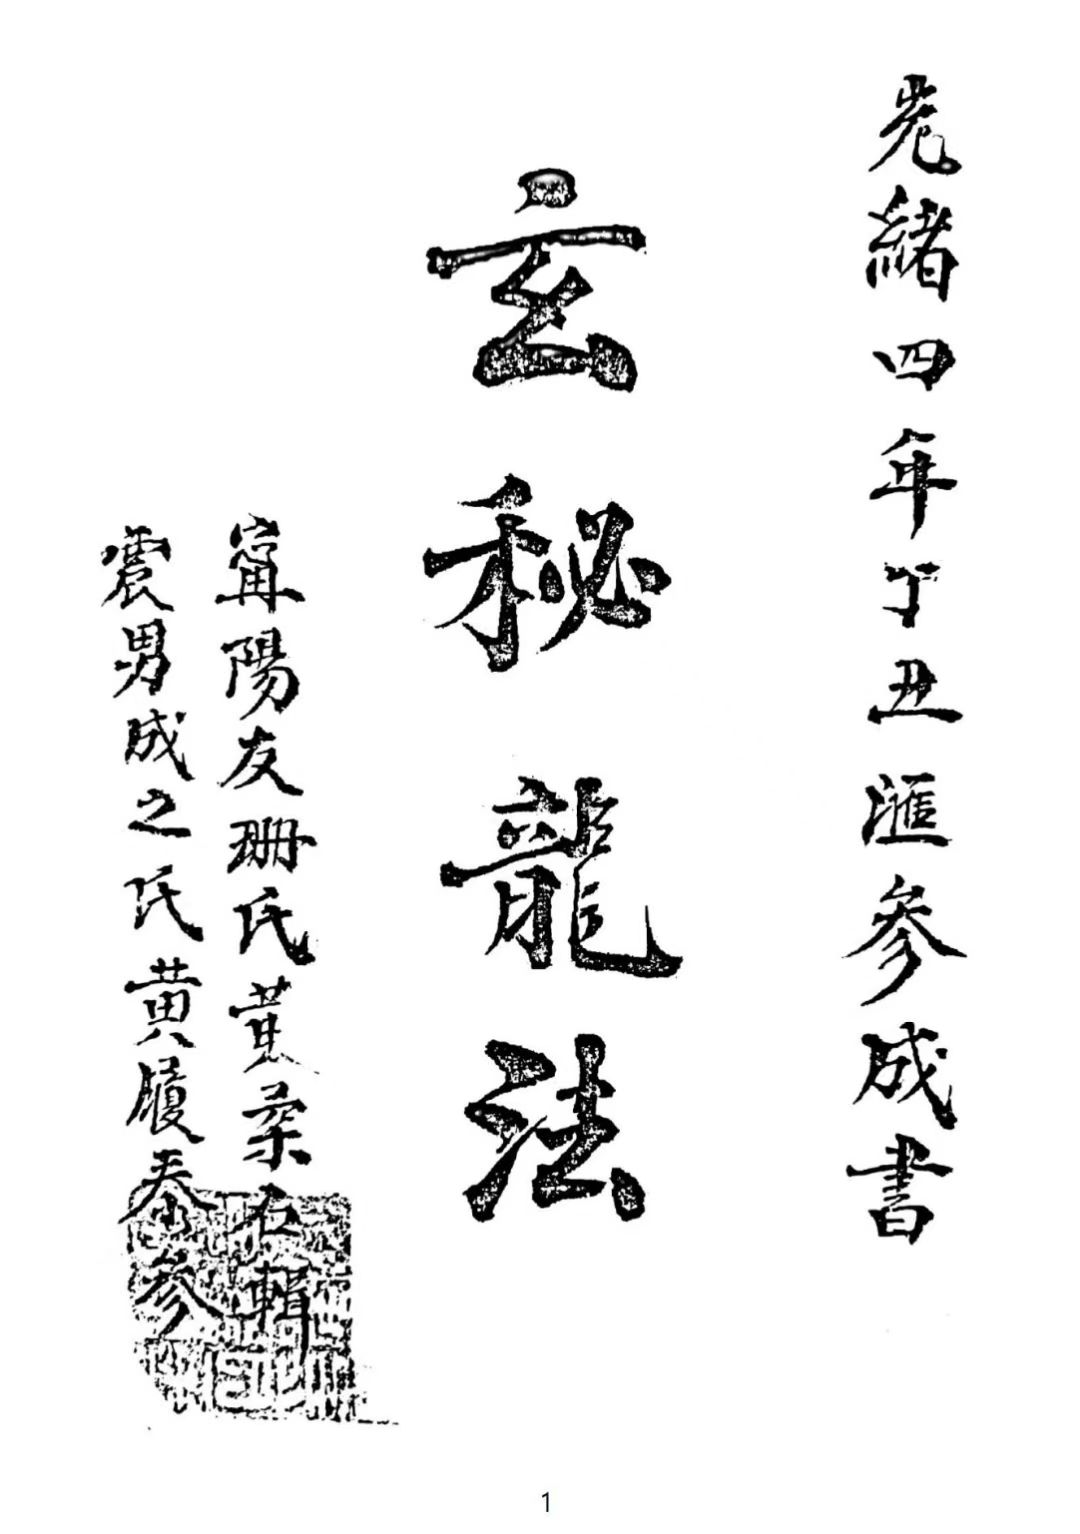 光緒四年丁丑匯參成書
玄秘龍法
甯陽友珊氏黃輯
震男成之氏黄履泰參
1